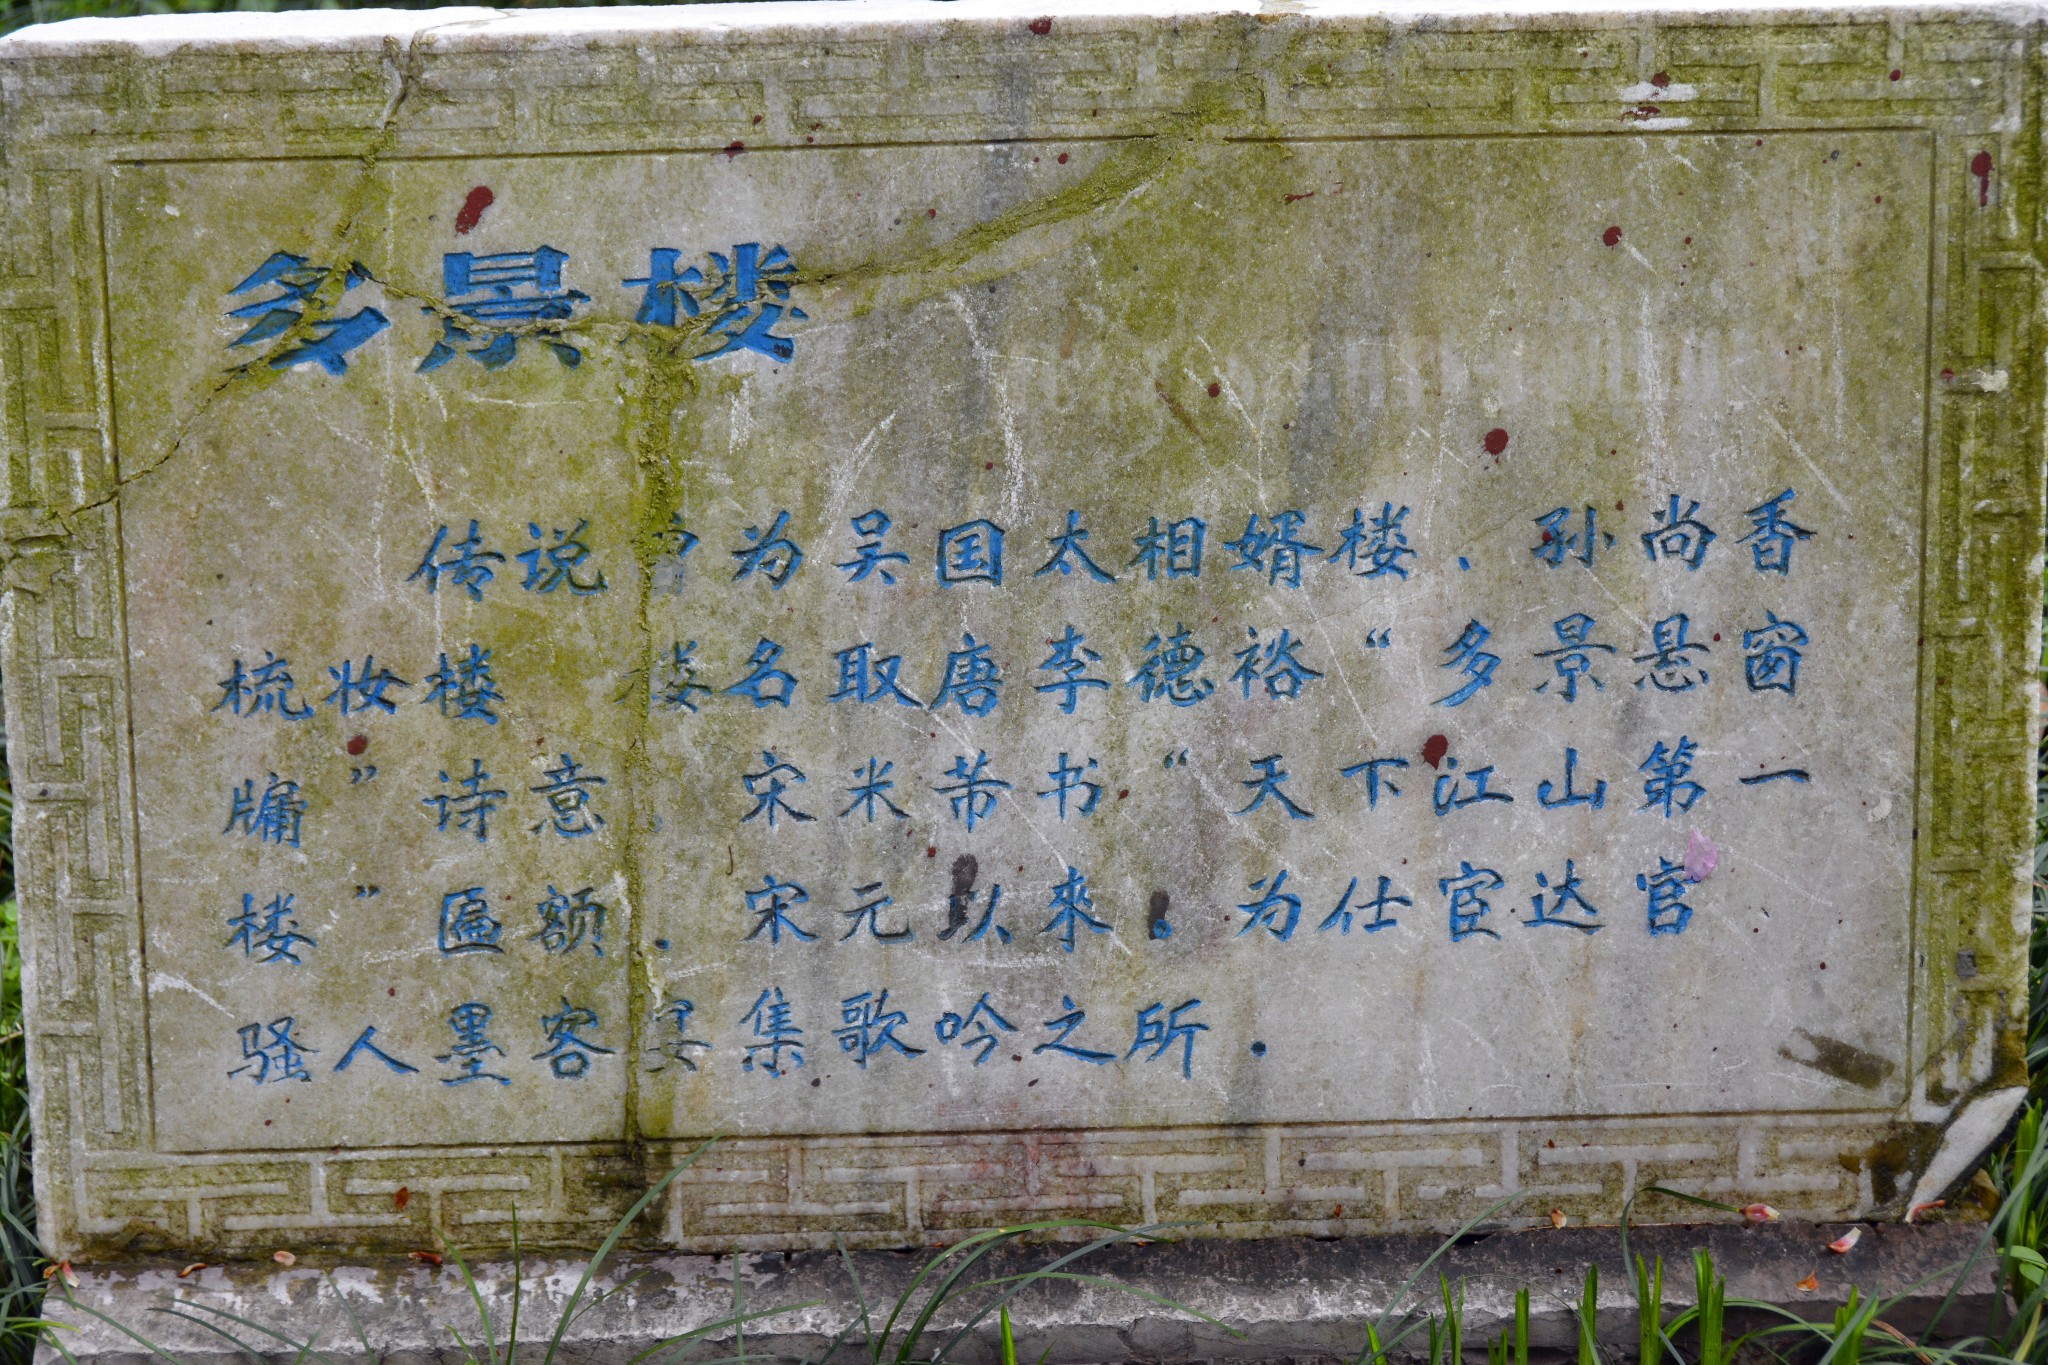 多景楼
传说曾为吴国太相婿楼.孙尚香
梳妆楼 楼名取唐李德裕“多景悬窗
牗”诗意.宋米芾书“天下江山第一
楼”匾额.宋元以來。为仕宦达官
骚人墨客宴集歌吟之所.